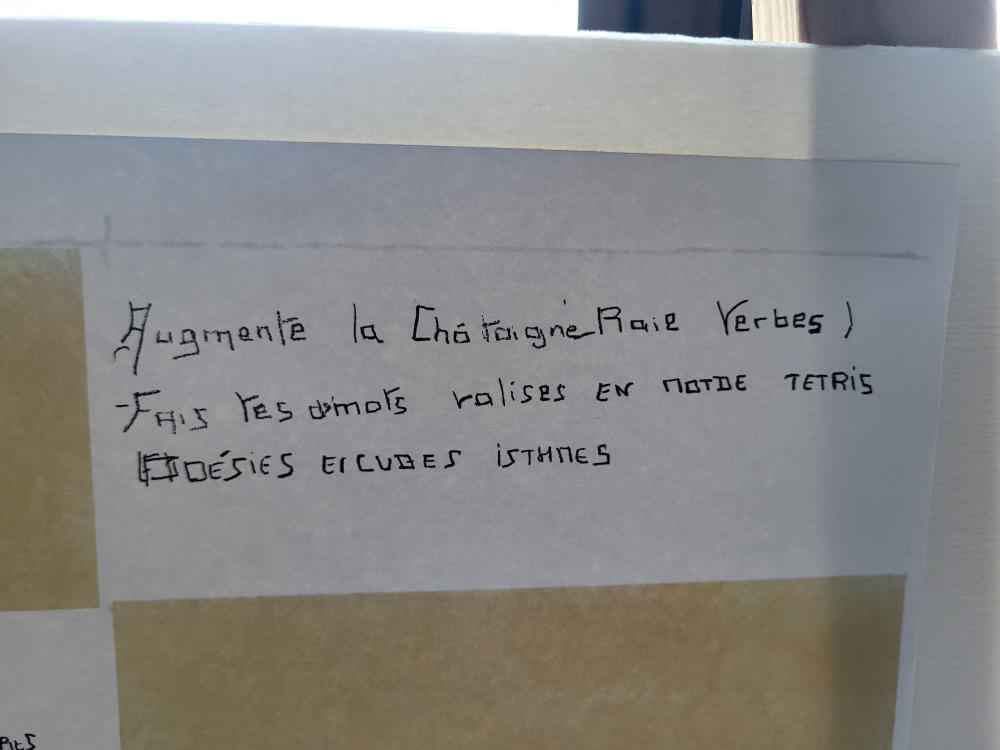 Augmente la Châtaigne Raie Verbes)
-Fais tes mots valises EN MOTDE TETRIS
POÉSIES ET CUBES iSTHMES